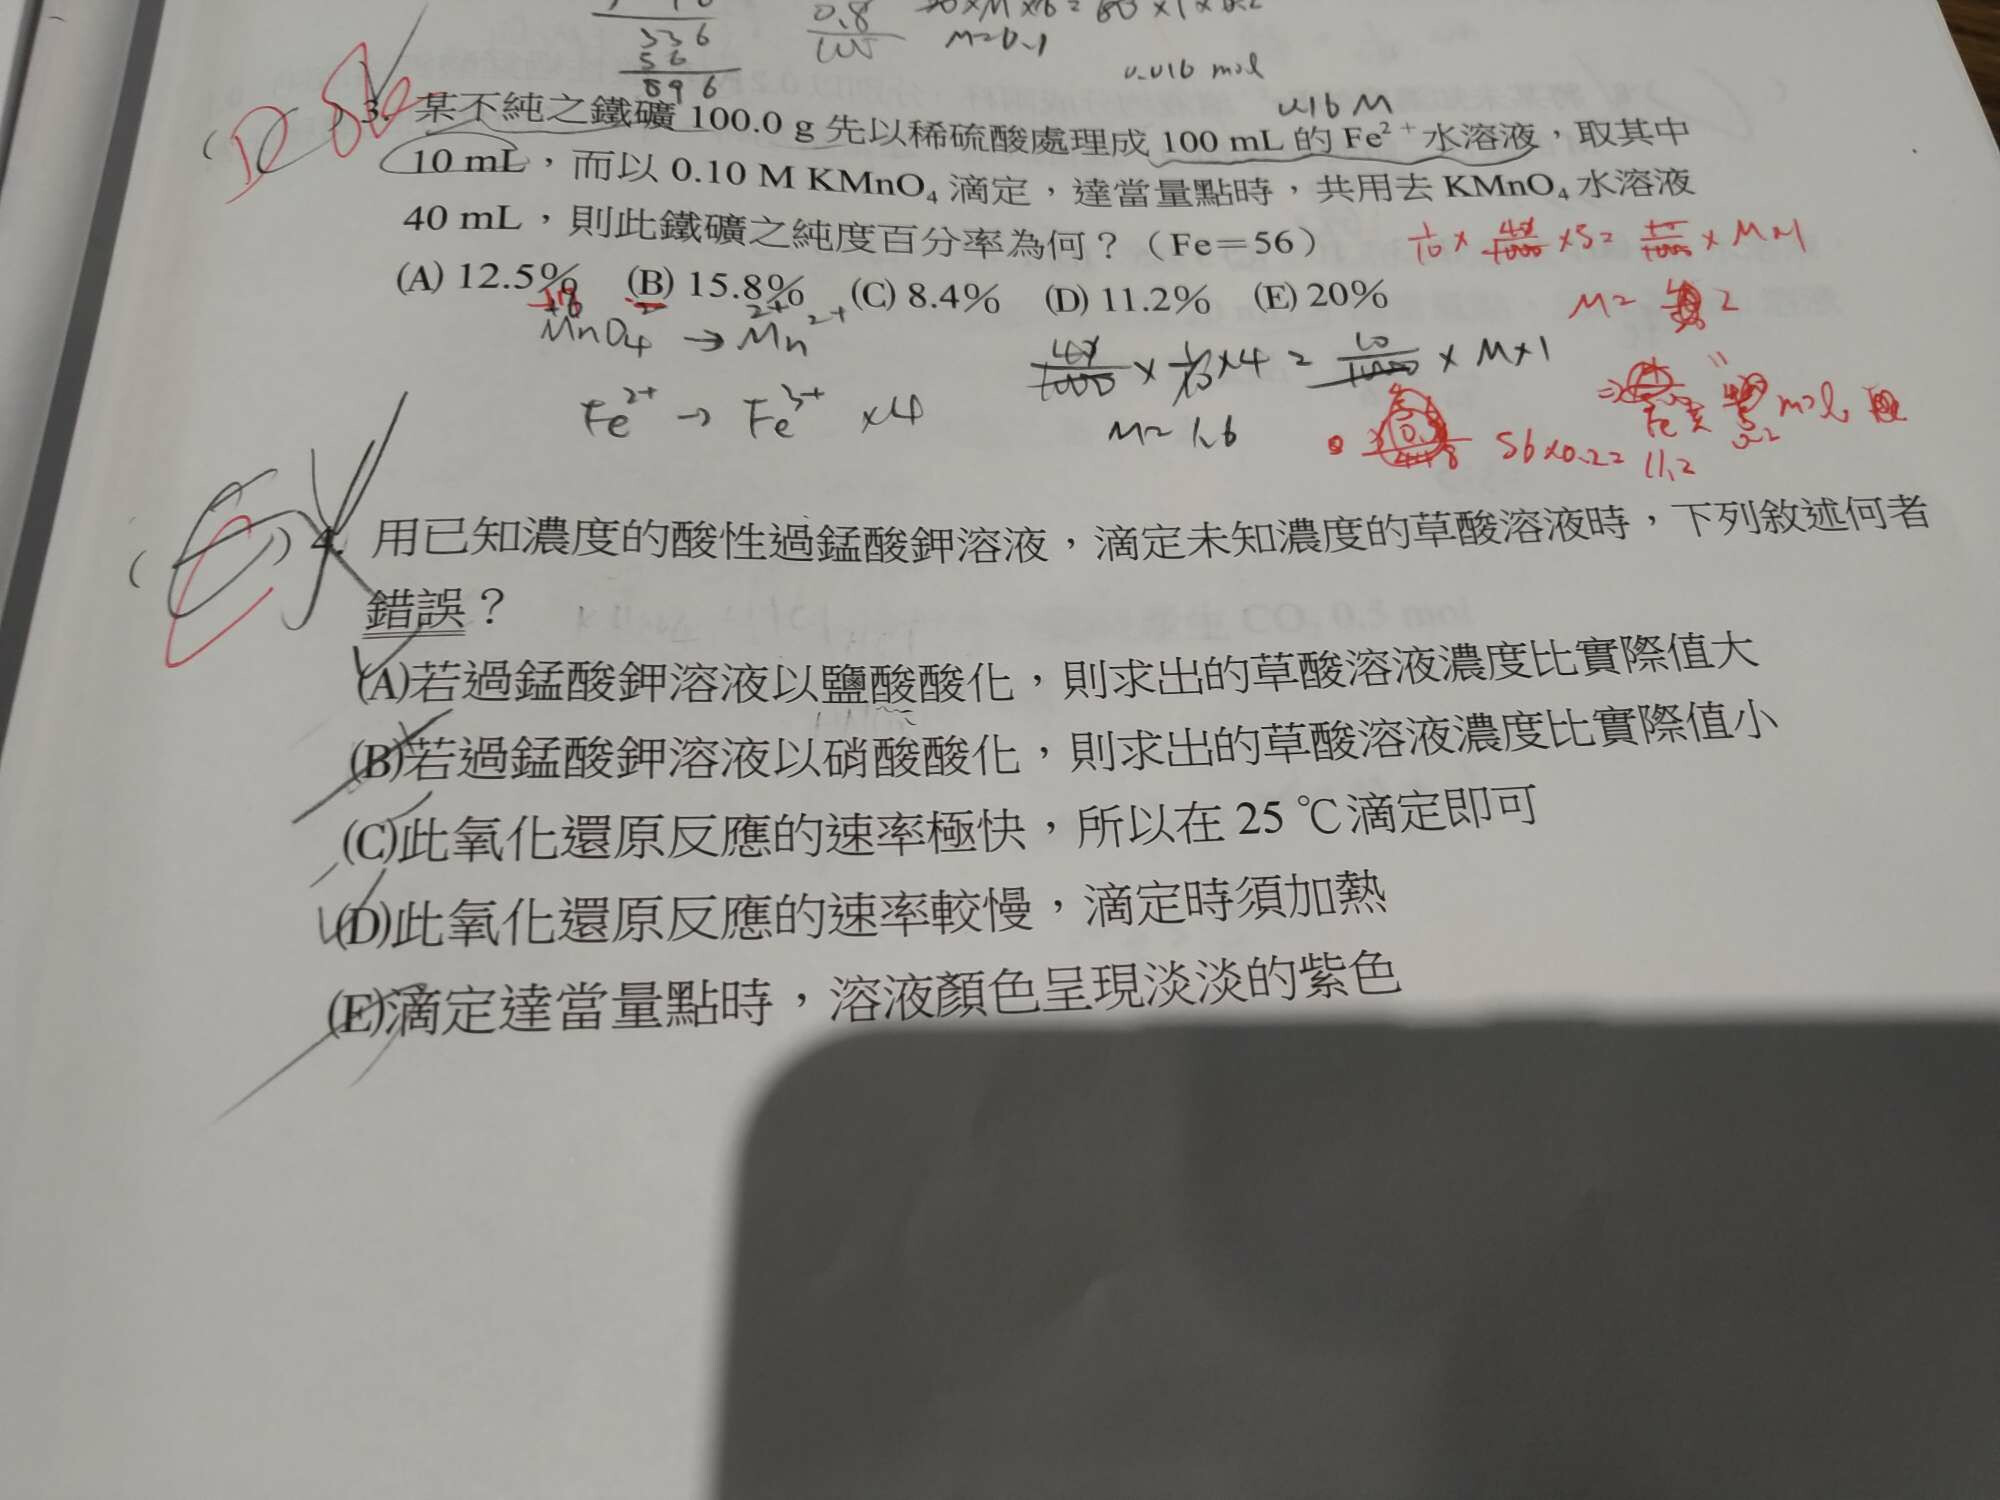 336
56
896
0.8
M=0.1
0.016 mol
0.16 M
D
3. 某不純之鐵礦 100.0 g 先以稀硫酸處理成 100 mL 的 Fe²⁺ 水溶液，取其中
10 mL，而以 0.10 M KMnO₄ 滴定，達當量點時，共用去 KMnO₄ 水溶液
40 mL，則此鐵礦之純度百分率為何？（Fe＝56）
(A) 12.5% (B) 15.8% (C) 8.4% (D) 11.2% (E) 20%
MnO₄ → Mn²⁺
Fe²⁺ → Fe³⁺ ×4
M=1.6
56×0.2=11.2
( ) 4. 用已知濃度的酸性過錳酸鉀溶液，滴定未知濃度的草酸溶液時，下列敘述何者
錯誤？
(A)若過錳酸鉀溶液以鹽酸酸化，則求出的草酸溶液濃度比實際值大
(B)若過錳酸鉀溶液以硝酸酸化，則求出的草酸溶液濃度比實際值小
(C)此氧化還原反應的速率極快，所以在 25 ℃滴定即可
(D)此氧化還原反應的速率較慢，滴定時須加熱
(E)滴定達當量點時，溶液顏色呈現淡淡的紫色